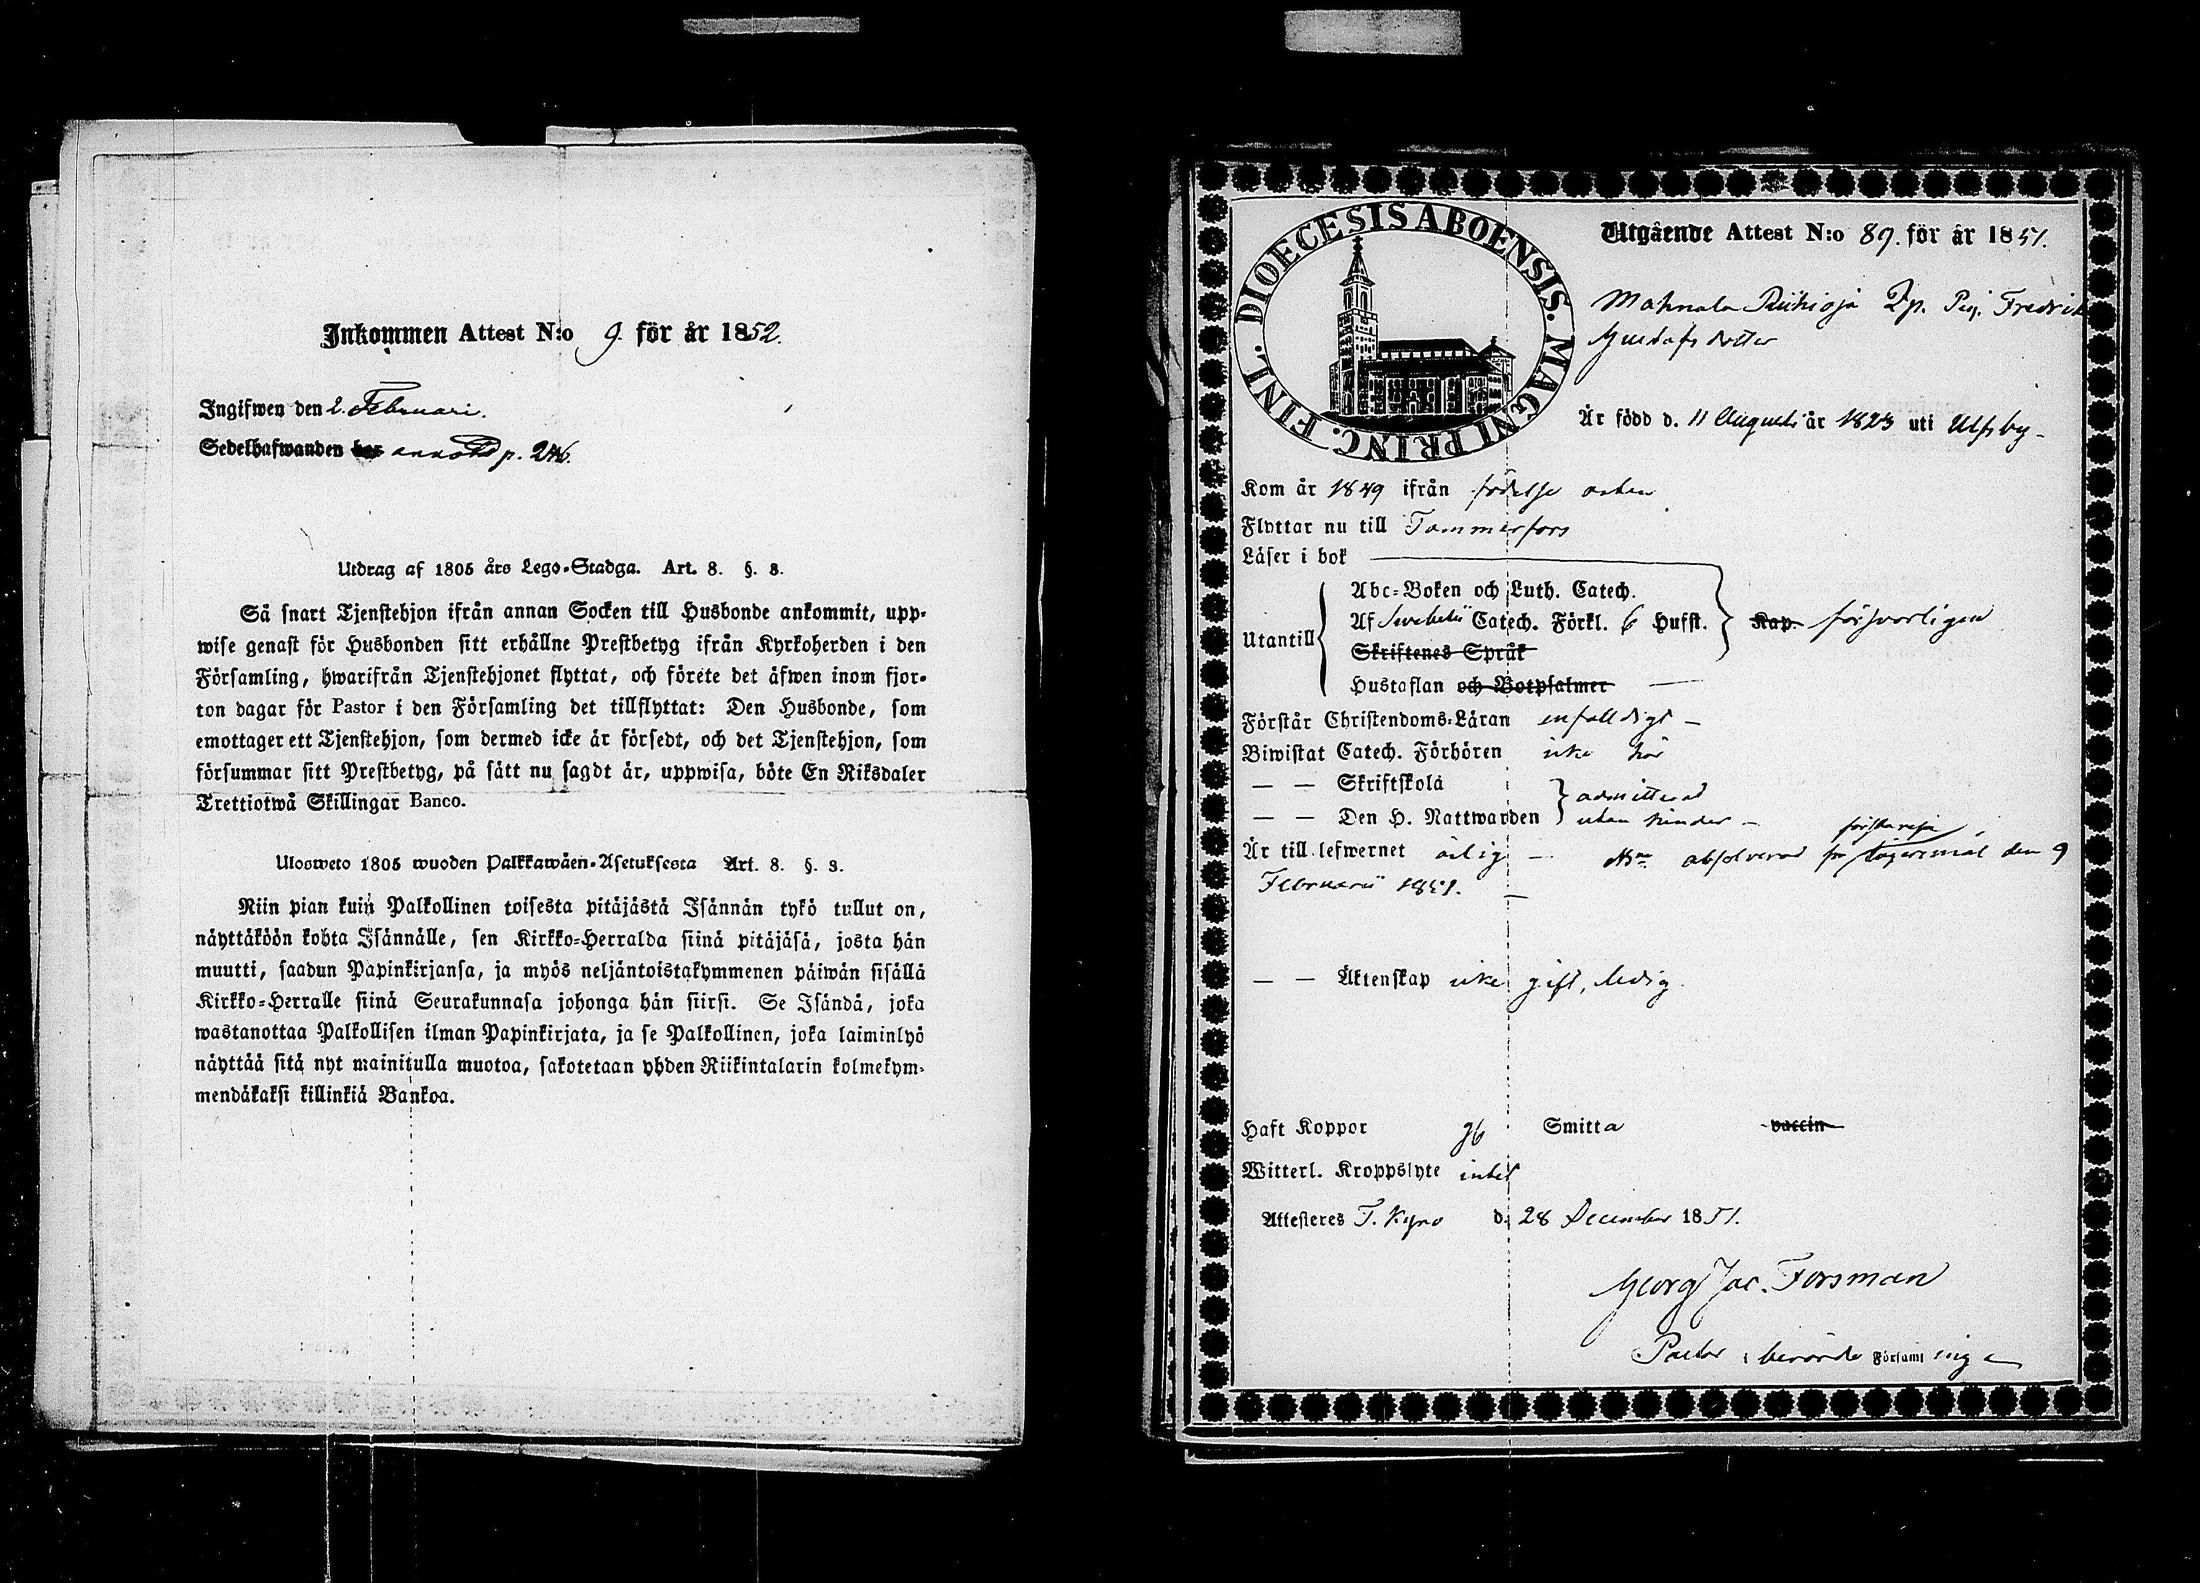 Inkommen Attest N:o 9. för år 1852.
Ingifwen den 2. Februari.
Sedelhafwanden har annoterad p. 246.
Utdrag af 1805 års Lego-Stadga. Art. 8. §. 3.
Så snart Tjenstehjon ifrån annan Socken till Husbonde ankommit, upp-
wise genast för Husbonden sitt erhållne Prestbetyg ifrån Kyrkoherden i den
Församling, hwarifrån Tjenstehjonet flyttat, och förete det äfwen inom fjor-
ton dagar för Pastor i den Församling det tillflyttat: Den Husbonde, som
emottager ett Tjenstehjon, som dermed icke är försedt, och det Tjenstehjon, som
försummar sitt Prestbetyg, på sätt nu sagdt är, uppwisa, böte En Riksdaler
Trettiotwå Skillingar Banco.
Ulosweto 1805 wuoden Palkkawäen-Asetuksesta Art. 8. §. 3.
Niin pian kuin Palkollinen toisesta pitäjästä Isännän tykö tullut on,
näyttäköön kohta Isännälle, sen Kirkko-Herralda siinä pitäjäsä, josta hän
muutti, saadun Papinkirjansa, ja myös neljäntoistakymmenen päiwän sisällä
Kirkko-Herralle siinä Seurakunnasa johonga hän siirsi. Se Isändä, joka
wastanottaa Palkollisen ilman Papinkirjata, ja se Palkollinen, joka laiminlyö
näyttää sitä nyt mainitulla muotoa, sakotetaan yhden Riikintalarin kolmekym-
mendäkaksi killinkiä Bankoa.
DIOECESIS ABOENSIS. MAGNI PRINC. FINL.
Utgående Attest N:o 89. för år 1851.
Mahnala Riihioja Pig. Fredrika
Gustafs dotter
Är född d. 11 Augusti år 1823 uti Ulfsby
Kom år 1849 ifrån födelse orten
Flyttar nu till Tammerfors
Läser i bok
Utantill
Abc-Boken och Luth. Catech.
Af Swebelii Catech. Förkl. 6 Hufst. Kap. försvarligen
Skriftenes Språk
Hustaflan och Botpsalmer
Förstår Christendoms-Läran enfalldigt
Biwistat Catech. Förhören icke här
— — Skriftskola admitterad
— — Den H. Nattwarden utan hinder
Är till lefwernet ärlig absolverad för första resa lägersmål den 9
Februarii 1851.
— — Äktenskap icke gift, ledig.
Haft Koppor Smitta vaccin
Witterl. Kroppslyte intet
Attesteres T. Kyro d. 28 December 1851.
Georg Jac. Forsman
Pastor i berörde Församlingen